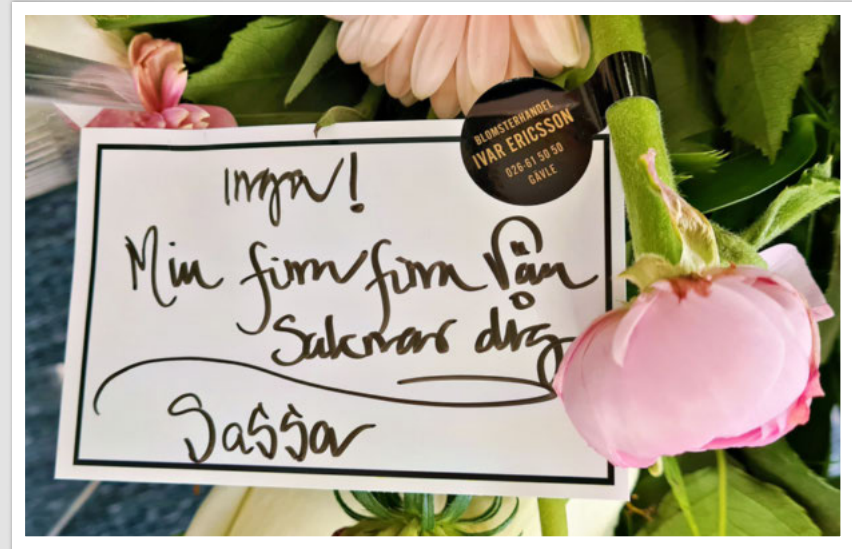 BLOMSTERHANDEL
IVAR ERICSSON
026-61 50 50
GÄVLE
Inga!
Min fina fina Vän
Saknar dig
Sassa